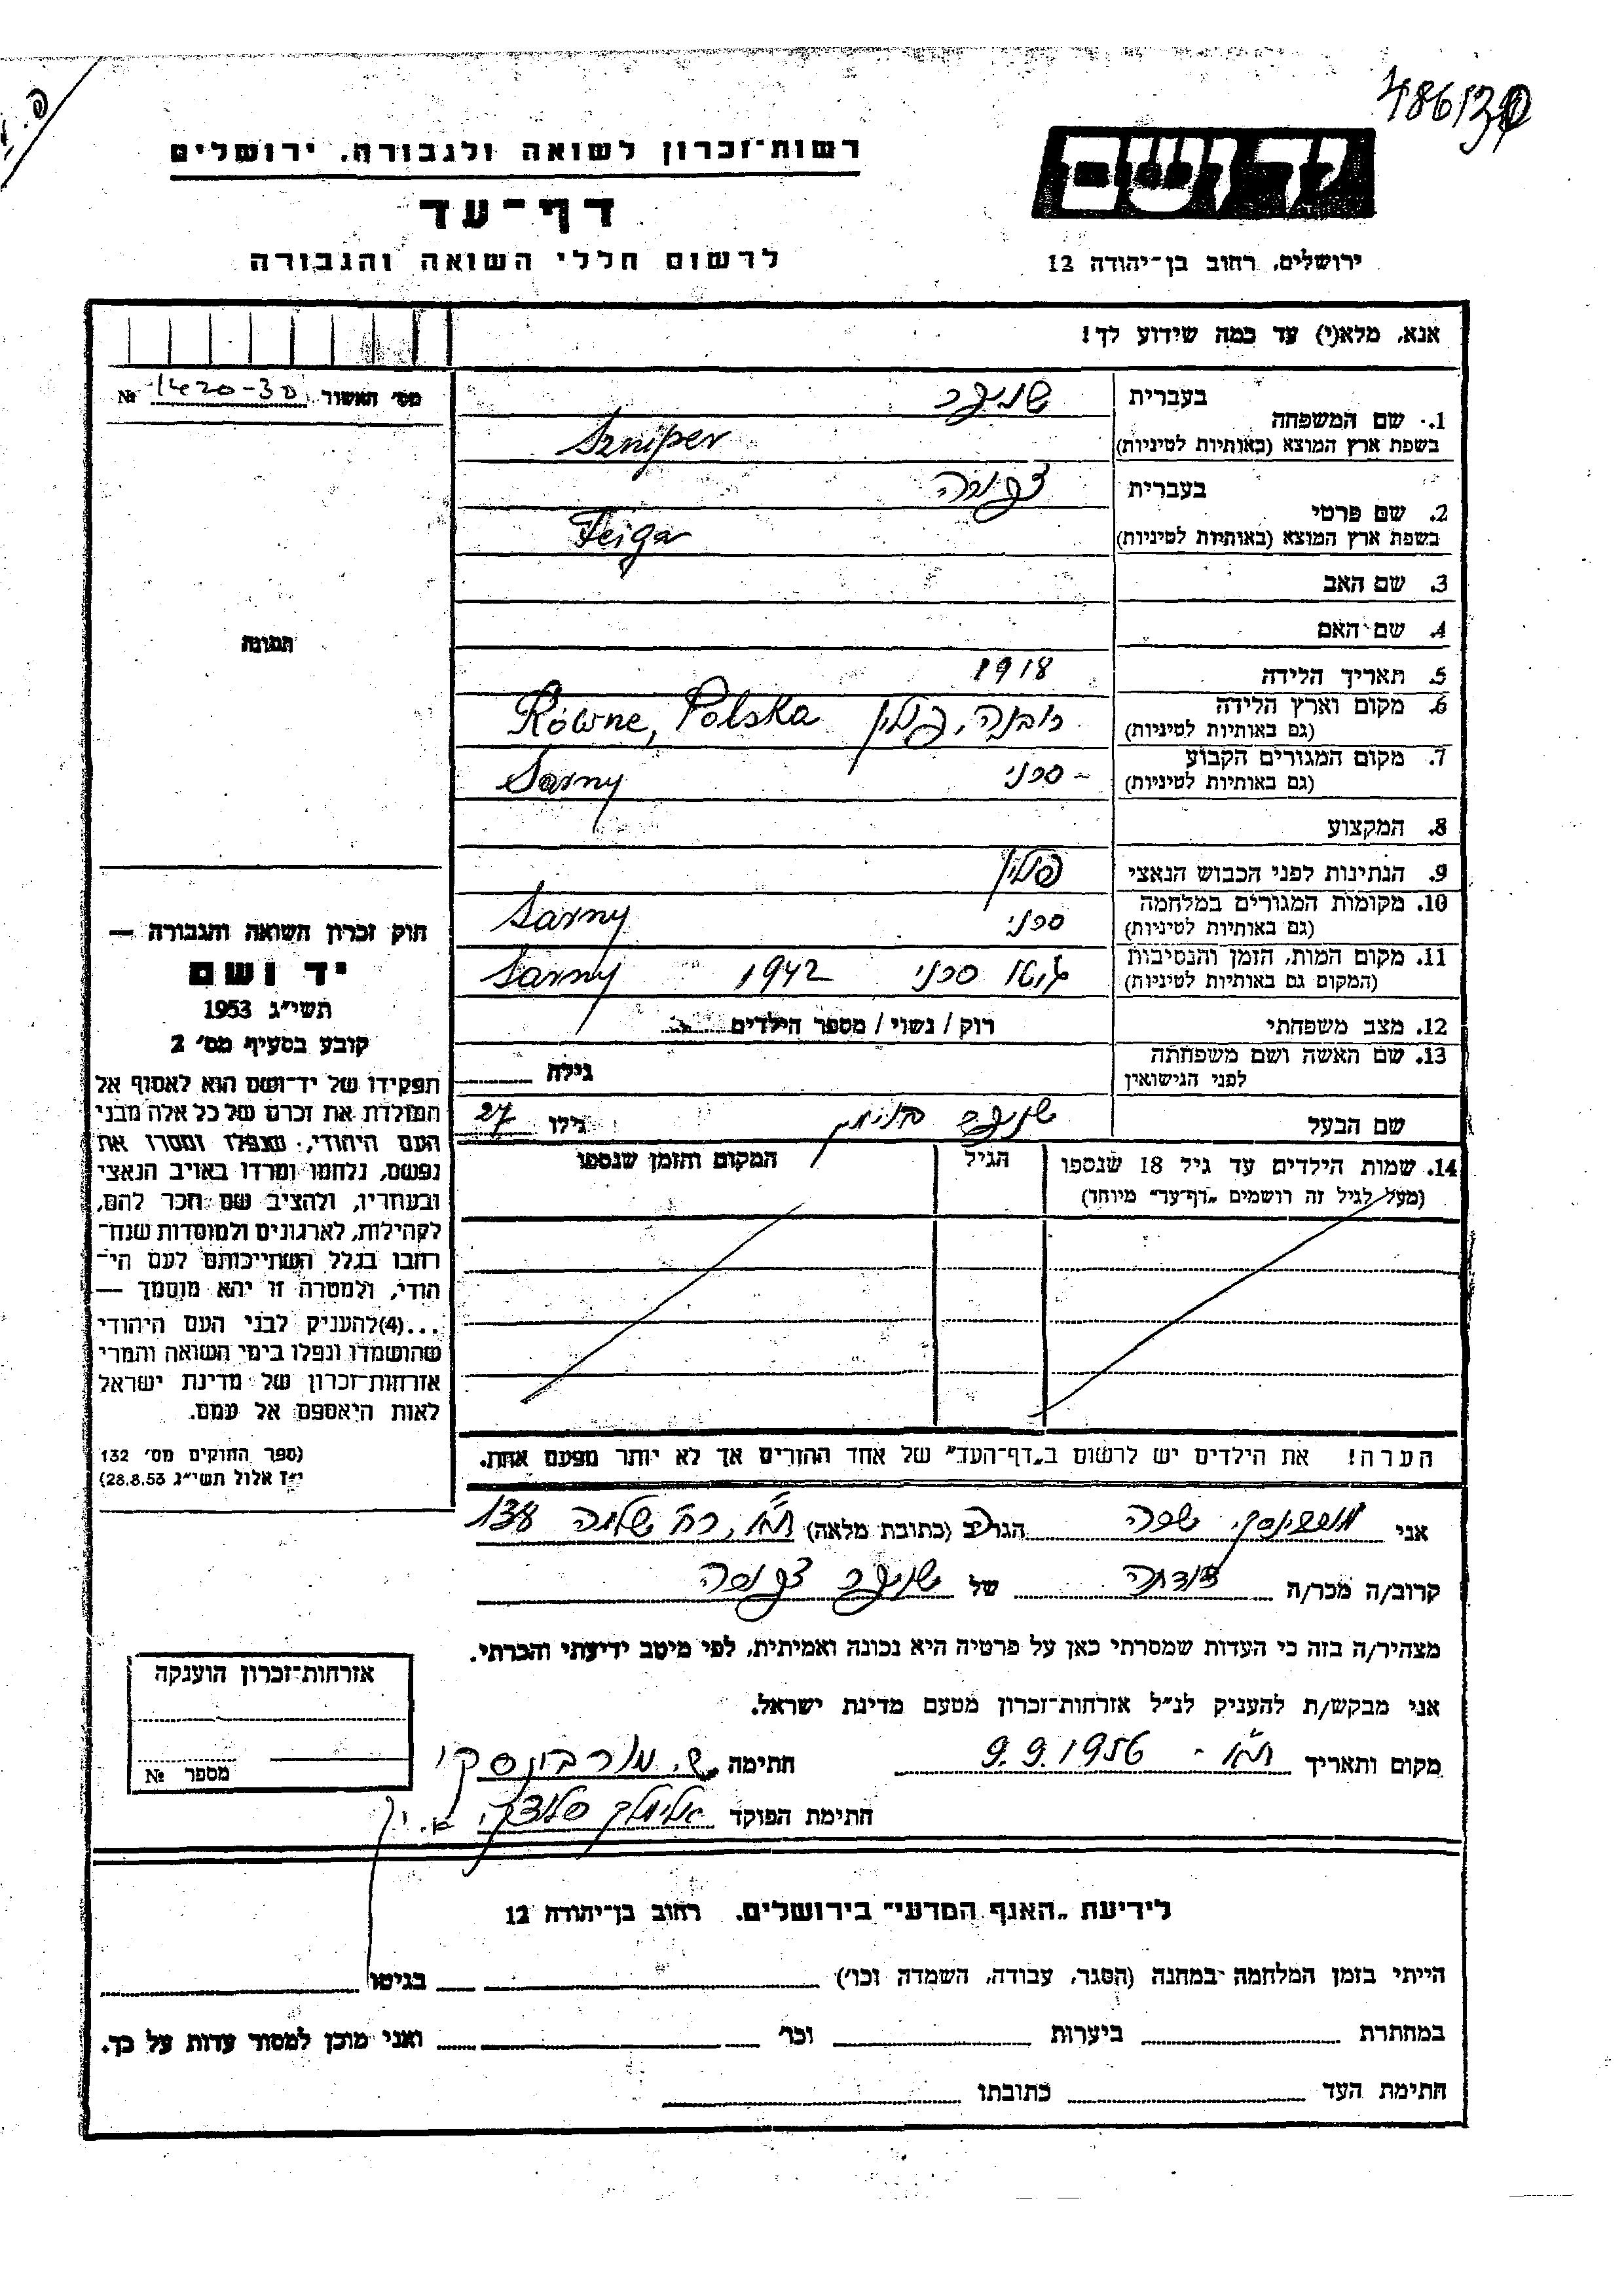 486130
רשות־זכרון לשואה ולגבורה, ירושלים
יד ושם
דף־עד
לרשום חללי השואה והגבורה
ירושלים, רחוב בן־יהודה 12
אנא, מלא(י) עד כמה שידוע לך!
מס׳ האשור 1420-30 №
1. שם המשפחה
בעברית שניפר
בשפת ארץ המוצא (באותיות לטיניות) Szniper
2. שם פרטי
בעברית צפורה
בשפת ארץ המוצא (באותיות לטיניות) Feiga
3. שם האב
4. שם האם
תמונה
5. תאריך הלידה 1918
6. מקום וארץ הלידה
(גם באותיות לטיניות) רובנה, פולין Równe, Polska
7. מקום המגורים הקבוע
(גם באותיות לטיניות) סרני Sarny
8. המקצוע
9. הנתינות לפני הכבוש הנאצי פולין
10. מקומות המגורים במלחמה
(גם באותיות לטיניות) סרני Sarny
11. מקום המות, הזמן והנסיבות
(המקום גם באותיות לטיניות) גיטו סרני 1942 Sarny
12. מצב משפחתי רוק / נשוי / מספר הילדים
13. שם האשה ושם משפחתה
לפני הנישואין גילה
שם הבעל שניפר גילו 27
14. שמות הילדים עד גיל 18 שנספו הגיל המקום והזמן שנספו
(מעל לגיל זה רושמים „דף־עד״ מיוחד)
חוק זכרון השואה והגבורה —
יד ושם
תשי״ג 1953
קובע בסעיף מס׳ 2
תפקידו של יד־ושם הוא לאסוף אל
המולדת את זכרם של כל אלה מבני
העם היהודי, שנפלו ומסרו את
נפשם, נלחמו ומרדו באויב הנאצי
ובעוזריו, ולהציב שם וזכר להם,
לקהילות, לארגונים ולמוסדות שנח־
רבו בגלל השתייכותם לעם הי־
הודי, ולמטרה זו יהא מוסמך —
...(4)להעניק לבני העם היהודי
שהושמדו ונפלו בימי השואה והמרי
אזרחות־זכרון של מדינת ישראל
לאות היאספם אל עמם.
(ספר החוקים מס׳ 132
י״ז אלול תשי״ג 28.8.53)
הערה! את הילדים יש לרשום ב„דף־העד״ של אחד ההורים אך לא יותר מפעם אחת.
אני שרה הגר ב (כתובת מלאה) ת״א, רח׳ שלמה
קרוב/ה מכר/ה דודתה של שניפר צפורה
מצהיר/ה בזה כי העדות שמסרתי כאן על פרטיה היא נכונה ואמיתית, לפי מיטב ידיעתי והכרתי.
אני מבקש/ת להעניק לנ״ל אזרחות־זכרון מטעם מדינת ישראל.
מקום ותאריך ת״א - 9.9.1956 חתימה ש.
חתימת הפוקד אלימלך
אזרחות־זכרון הוענקה
מספר №
לידיעת „האגף המדעי״ בירושלים, רחוב בן־יהודה 12
הייתי בזמן המלחמה במחנה (הסגר, עבודה, השמדה וכו׳) בגיטו
במחתרת ביערות וכו׳ ואני מוכן למסור עדות על כך.
חתימת העד כתובתו